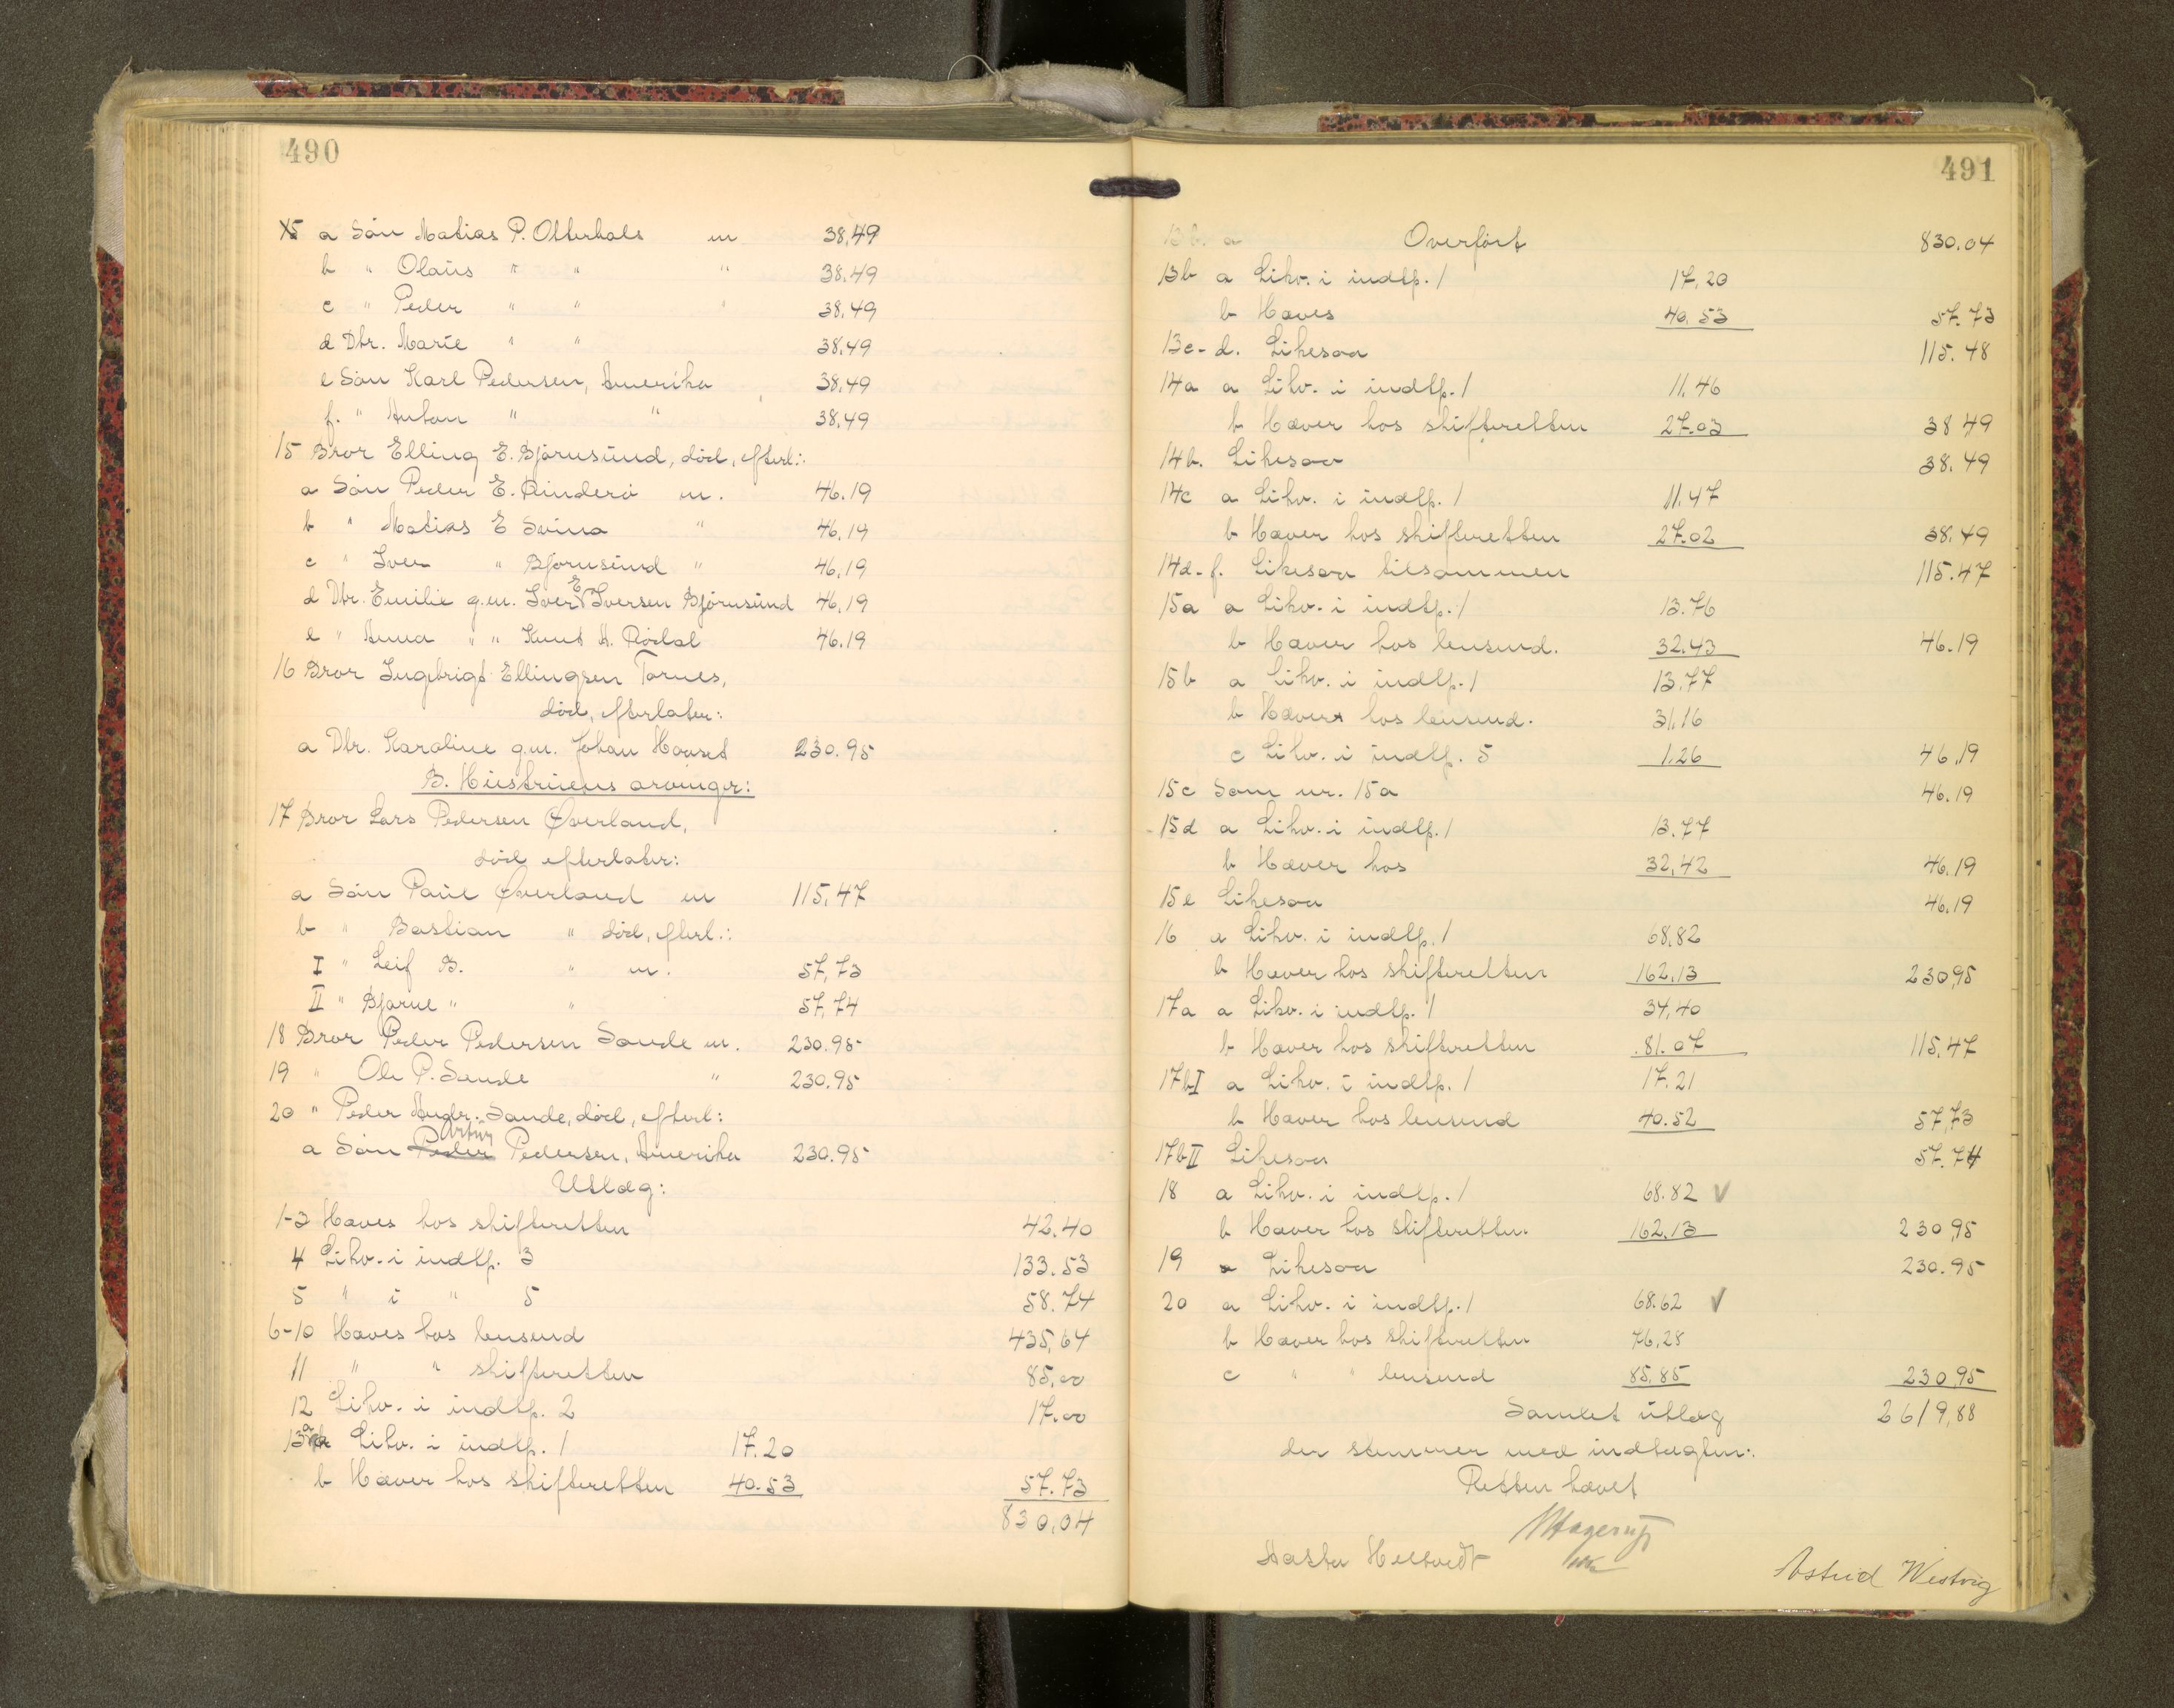 490
a Søn Matias P. Otterhals m 38,49
b " Olaus " " " 38,49
c " Peder " " " 38,49
d Dtr. Marie " " 38,49
e Søn Karl Pedersen, Amerika 38,49
f. " Anton " " 38,49
15 Bror Elling E. Bjørnsund, død, efterl.:
a Søn Peder E. Rinderø m. 46.19
b " Matias E Svina " 46.19
c " Iver " Bjørnsund " 46,19
d Dtr. Emilie g.m. Iver E Iversen Bjørnsund 46,19
e " Anna " " Knut A. Rødal 46.19
16 Bror Ingebrigt Ellingsen Tornes,
død, efterlater:
a Dtr. Karoline g.m. Johan Hovset 230.95
B. Hustruens arvinger:
17 Bror Lars Pedersen Øverland,
død efterlater:
a Søn Paul Øverland m 115,47
b " Bastian " død, efterl.:
I " Leif B. " m. 57,73
II " Bjarne " " 57,74
18 Bror Peder Pedersen Sande m. 230.95
19 " Ole P. Sande " 230.95
20 " Peder Andr. Sande, død, efterl:
a Søn Peder Artur Pedersen, Amerika 230.95
Utlæg:
1-3 Haves hos skifteretten 42.40
4 Likv. i indtp. 3 133.53
5 " i " 5 58.74
6-10 Haves hos lensmd 435,64
11 " " skifteretten 85,00
12 Likv. i indtp. 2 17.00
13a a Likv. i indtp. 1 17.20
b Haver hos skifteretten 40.53 57.73
830,04
491
Overført 830.04
13b a Likv. i indtp. 1 17,20
b Haves 40,53 57.73
13c-d. Likesaa 115.48
14a a Likv. i indtp. 1 11.46
b Haver hos skifteretten 27.03 38 49
14b. Likesaa 38.49
14c a Likv. i indtp. 1 11.47
b Haver hos skifteretten 27.02 38.49
14d-f. Likesaa tilsammen 115.47
15a a Likv. i indtp. 1 13.76
b Haver hos lensmd. 32.43 46.19
15b a Likv. i indtp. 1 13.77
b Haver hos lensmd. 31.16
c Likv. i indtp. 5 1.26 46,19
15c Som nr. 15a 46.19
15d a Likv. i indtp. 1 13.77
b Haver hos 32,42 46.19
15e Likesaa 46.19
16 a Likv. i indtp. 1 68,82
b Haver hos skifteretten 162,13 230,95
17a a Likv. i indtp. 1 34,40
b Haver hos skifteretten 81.07 115,47
17bI a Likv. i indtp. 1 17.21
b Haver hos lensmd 40.52 57,73
17bII Likesaa 57.74
18 a Likv. i indtp. 1 68.82 √
b Haver hos skifteretten. 162.13 230,95
19 Likesaa 230.95
20 a Likv. i indtp. 1 68.62 √
b Haver hos skifteretten 76,28
c " " lensmd 85,85 230,95
Samlet utlæg 2619,88
der stemmer med indtægten.
Retten hævet
Hagerup
Astrid Westvig